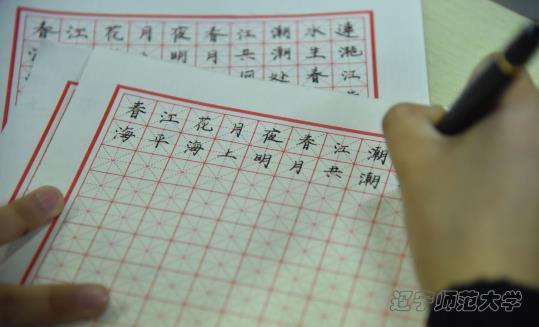 春江花月夜春江潮水連
海明月共潮生滟
处春江
春江花月夜春江潮
海平海上明月共潮
辽宁师范大学